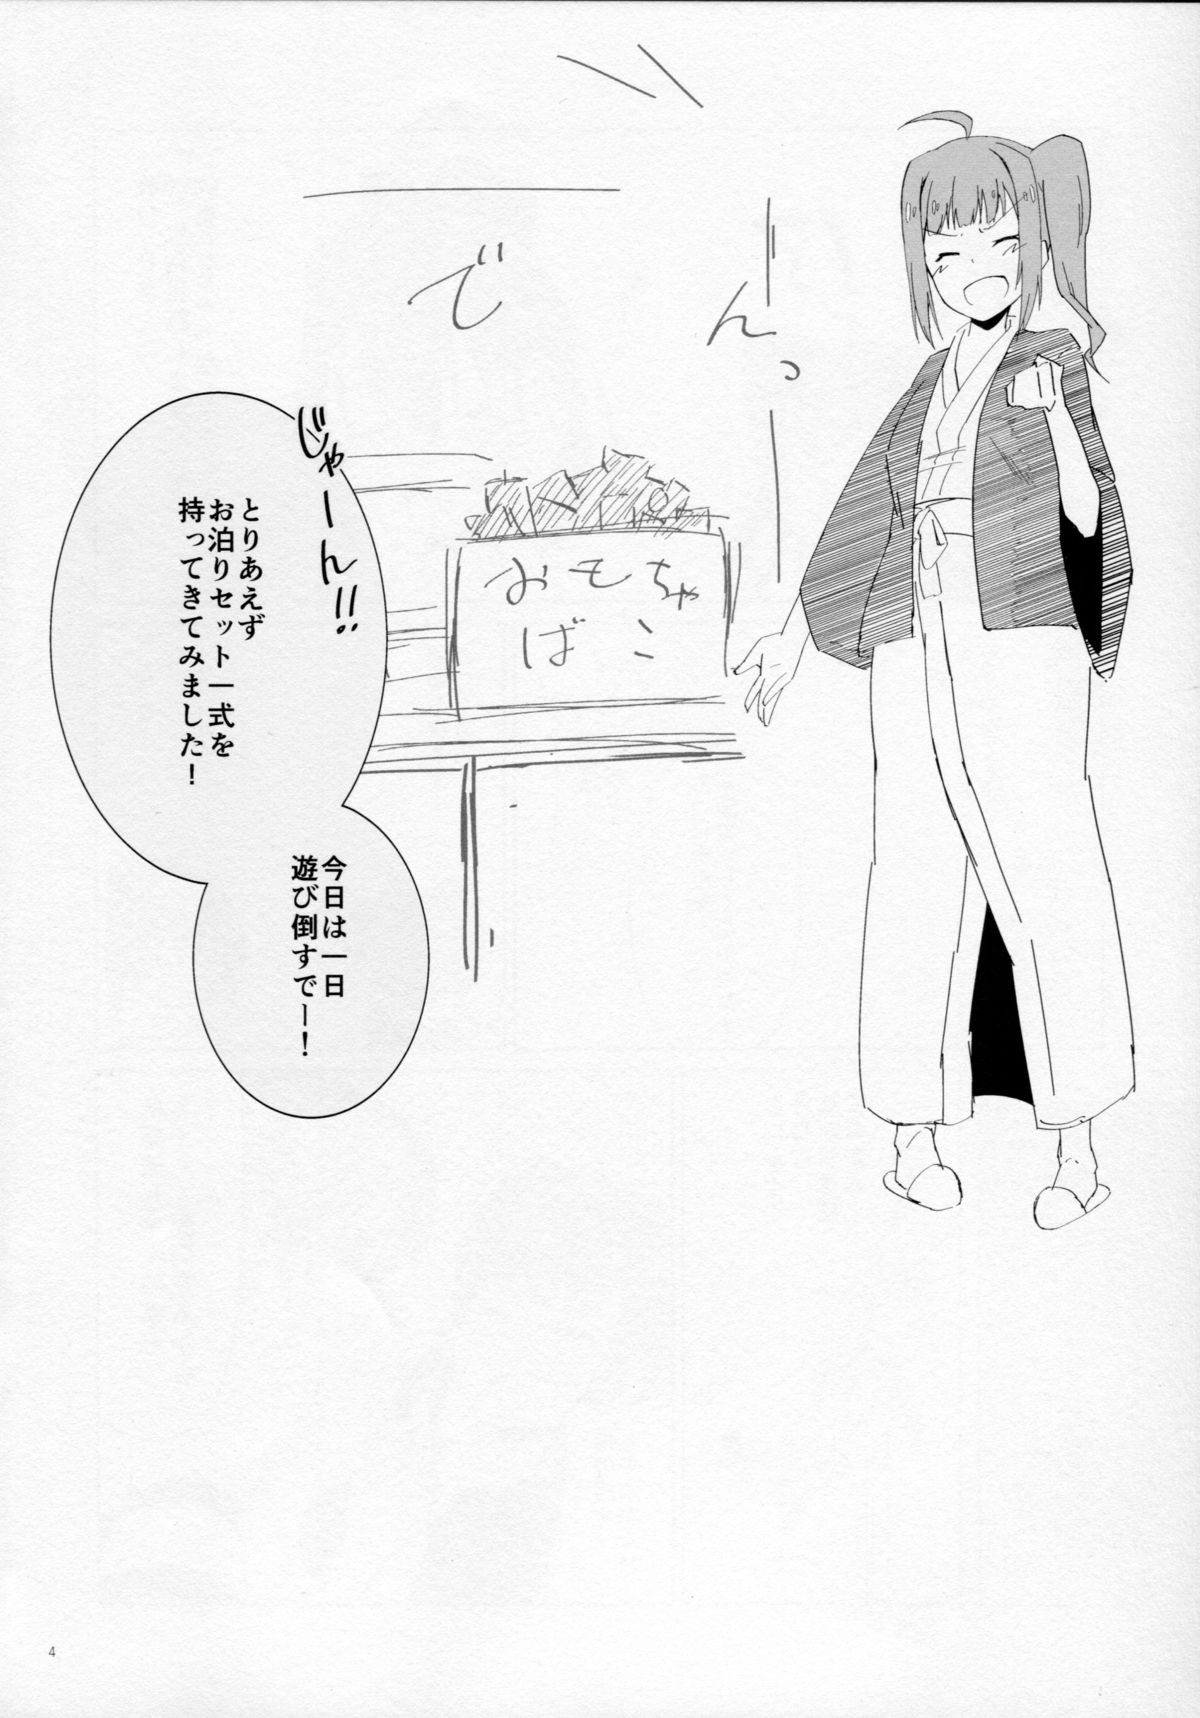 でーんっ
じゃーん!!
とりあえず
お泊りセット一式を
持ってきてみました!
おもちゃ
ばこ
今日は一日
遊び倒すでー!
4